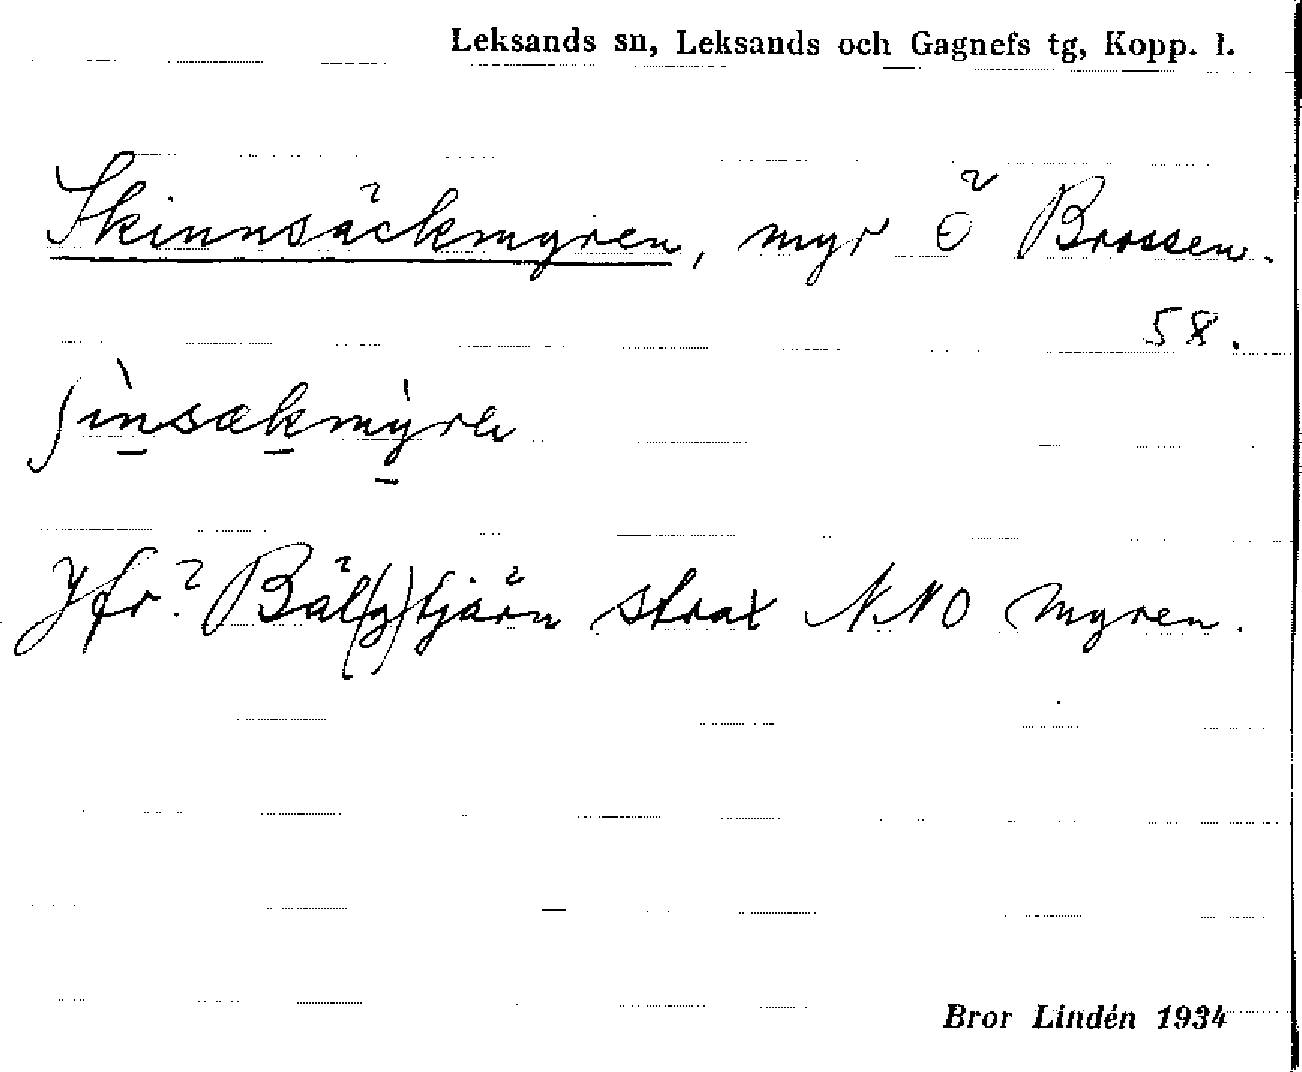 Leksands sn, Leksands och Gagnefs tg, Kopp. l.
Skinnsäckmyren, myr ö Brossen.
58.
ʃìnsækmýrn
Jfr? Bäl(g)tjärn strax NNO myren.
Bror Lindén 1934